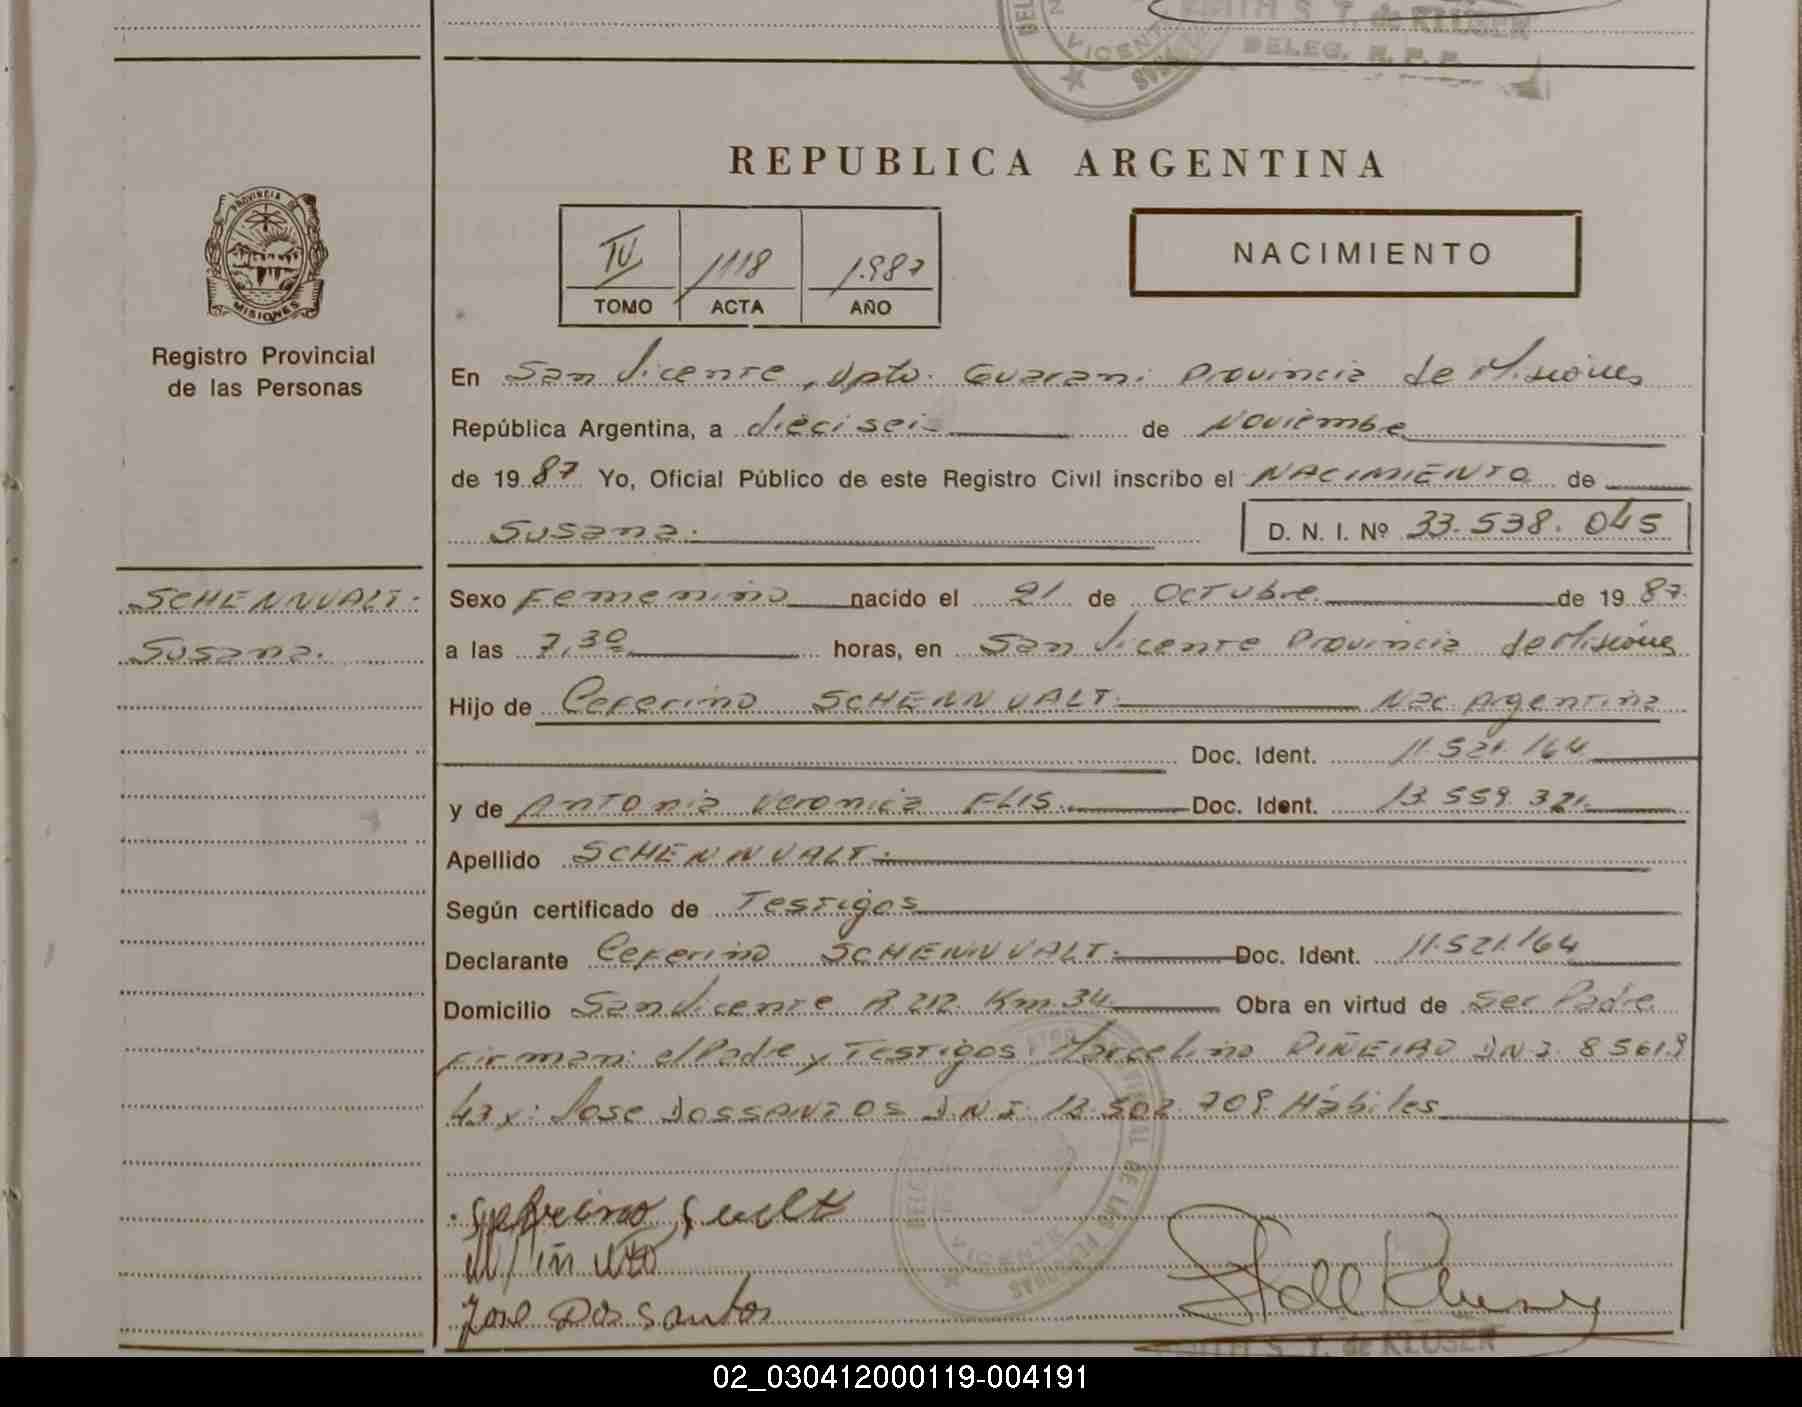 EDITH S. T. de KLUSER
DELEG. R. P. P.
VICENTE
REPUBLICA ARGENTINA
PROVINCIA DE
MISIONES
Registro Provincial
de las Personas
IV 1118 1.987
TOMO ACTA AÑO
NACIMIENTO
En San Vicente, Dpto. Guarani Provincia de Misiones
República Argentina, a dieciseis de Noviembre
de 1987 Yo, Oficial Público de este Registro Civil inscribo el NACIMIENTO de
Susana. D. N. I. Nº 33.538.045
SCHENNVALT.
Susana.
Sexo Femenino nacido el 21 de Octubre de 1987.
a las 7,30 horas, en San Vicente Provincia de Misiones
Hijo de Ceferino SCHENNVALT. Nac. Argentina
Doc. Ident. 11.521.164
y de Antonia Veronica FLIS. Doc. Ident. 13.559.321.
Apellido SCHENNVALT.
Según certificado de Testigos
Declarante Ceferino SCHENNVALT. Doc. Ident. 11.521.164
Domicilio San Vicente R. 212. Km. 34. Obra en virtud de Ser Padre
Firman: el Padre y Testigos: Marcelino PIÑEIRO D.N.I. 8 561.9
47 y: Jose DOSSANTOS D.N.I. 13.502.709. Hábiles
VICENTE
Jose Dos santos
EDITH S. T. de KLUSER
02_030412000119-004191